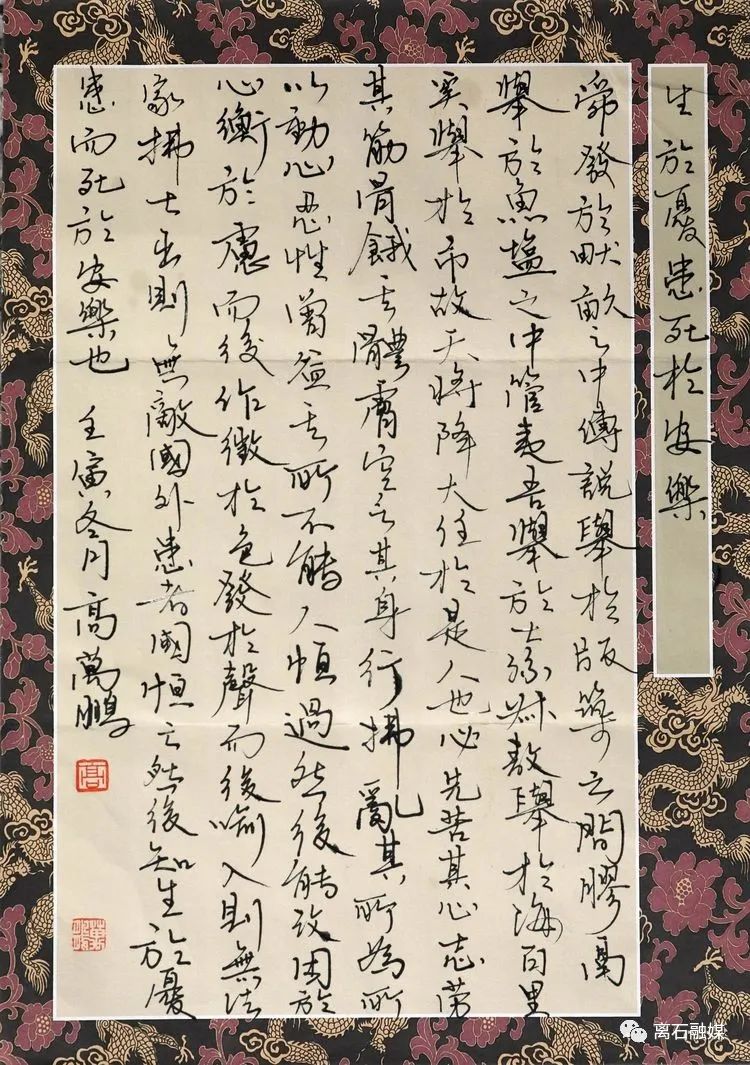 生於憂患死於安樂
舜發於畎畝之中傅說舉於版築之間膠鬲
舉於魚塩之中管夷吾舉於士孫叔敖舉於海百里
奚舉於市故天將降大任於是人也必先苦其心志勞
其筋骨餓其體膚空乏其身行拂亂其所為所
以動心忍性曾益其所不能人恒過然後能改困於
心衡於慮而後作徵於色發於聲而後喻入則無法
家拂士出則無敵國外患者國恒亡然後知生於憂
患而死於安樂也 壬寅冬月高萬鵬
高
离石融媒